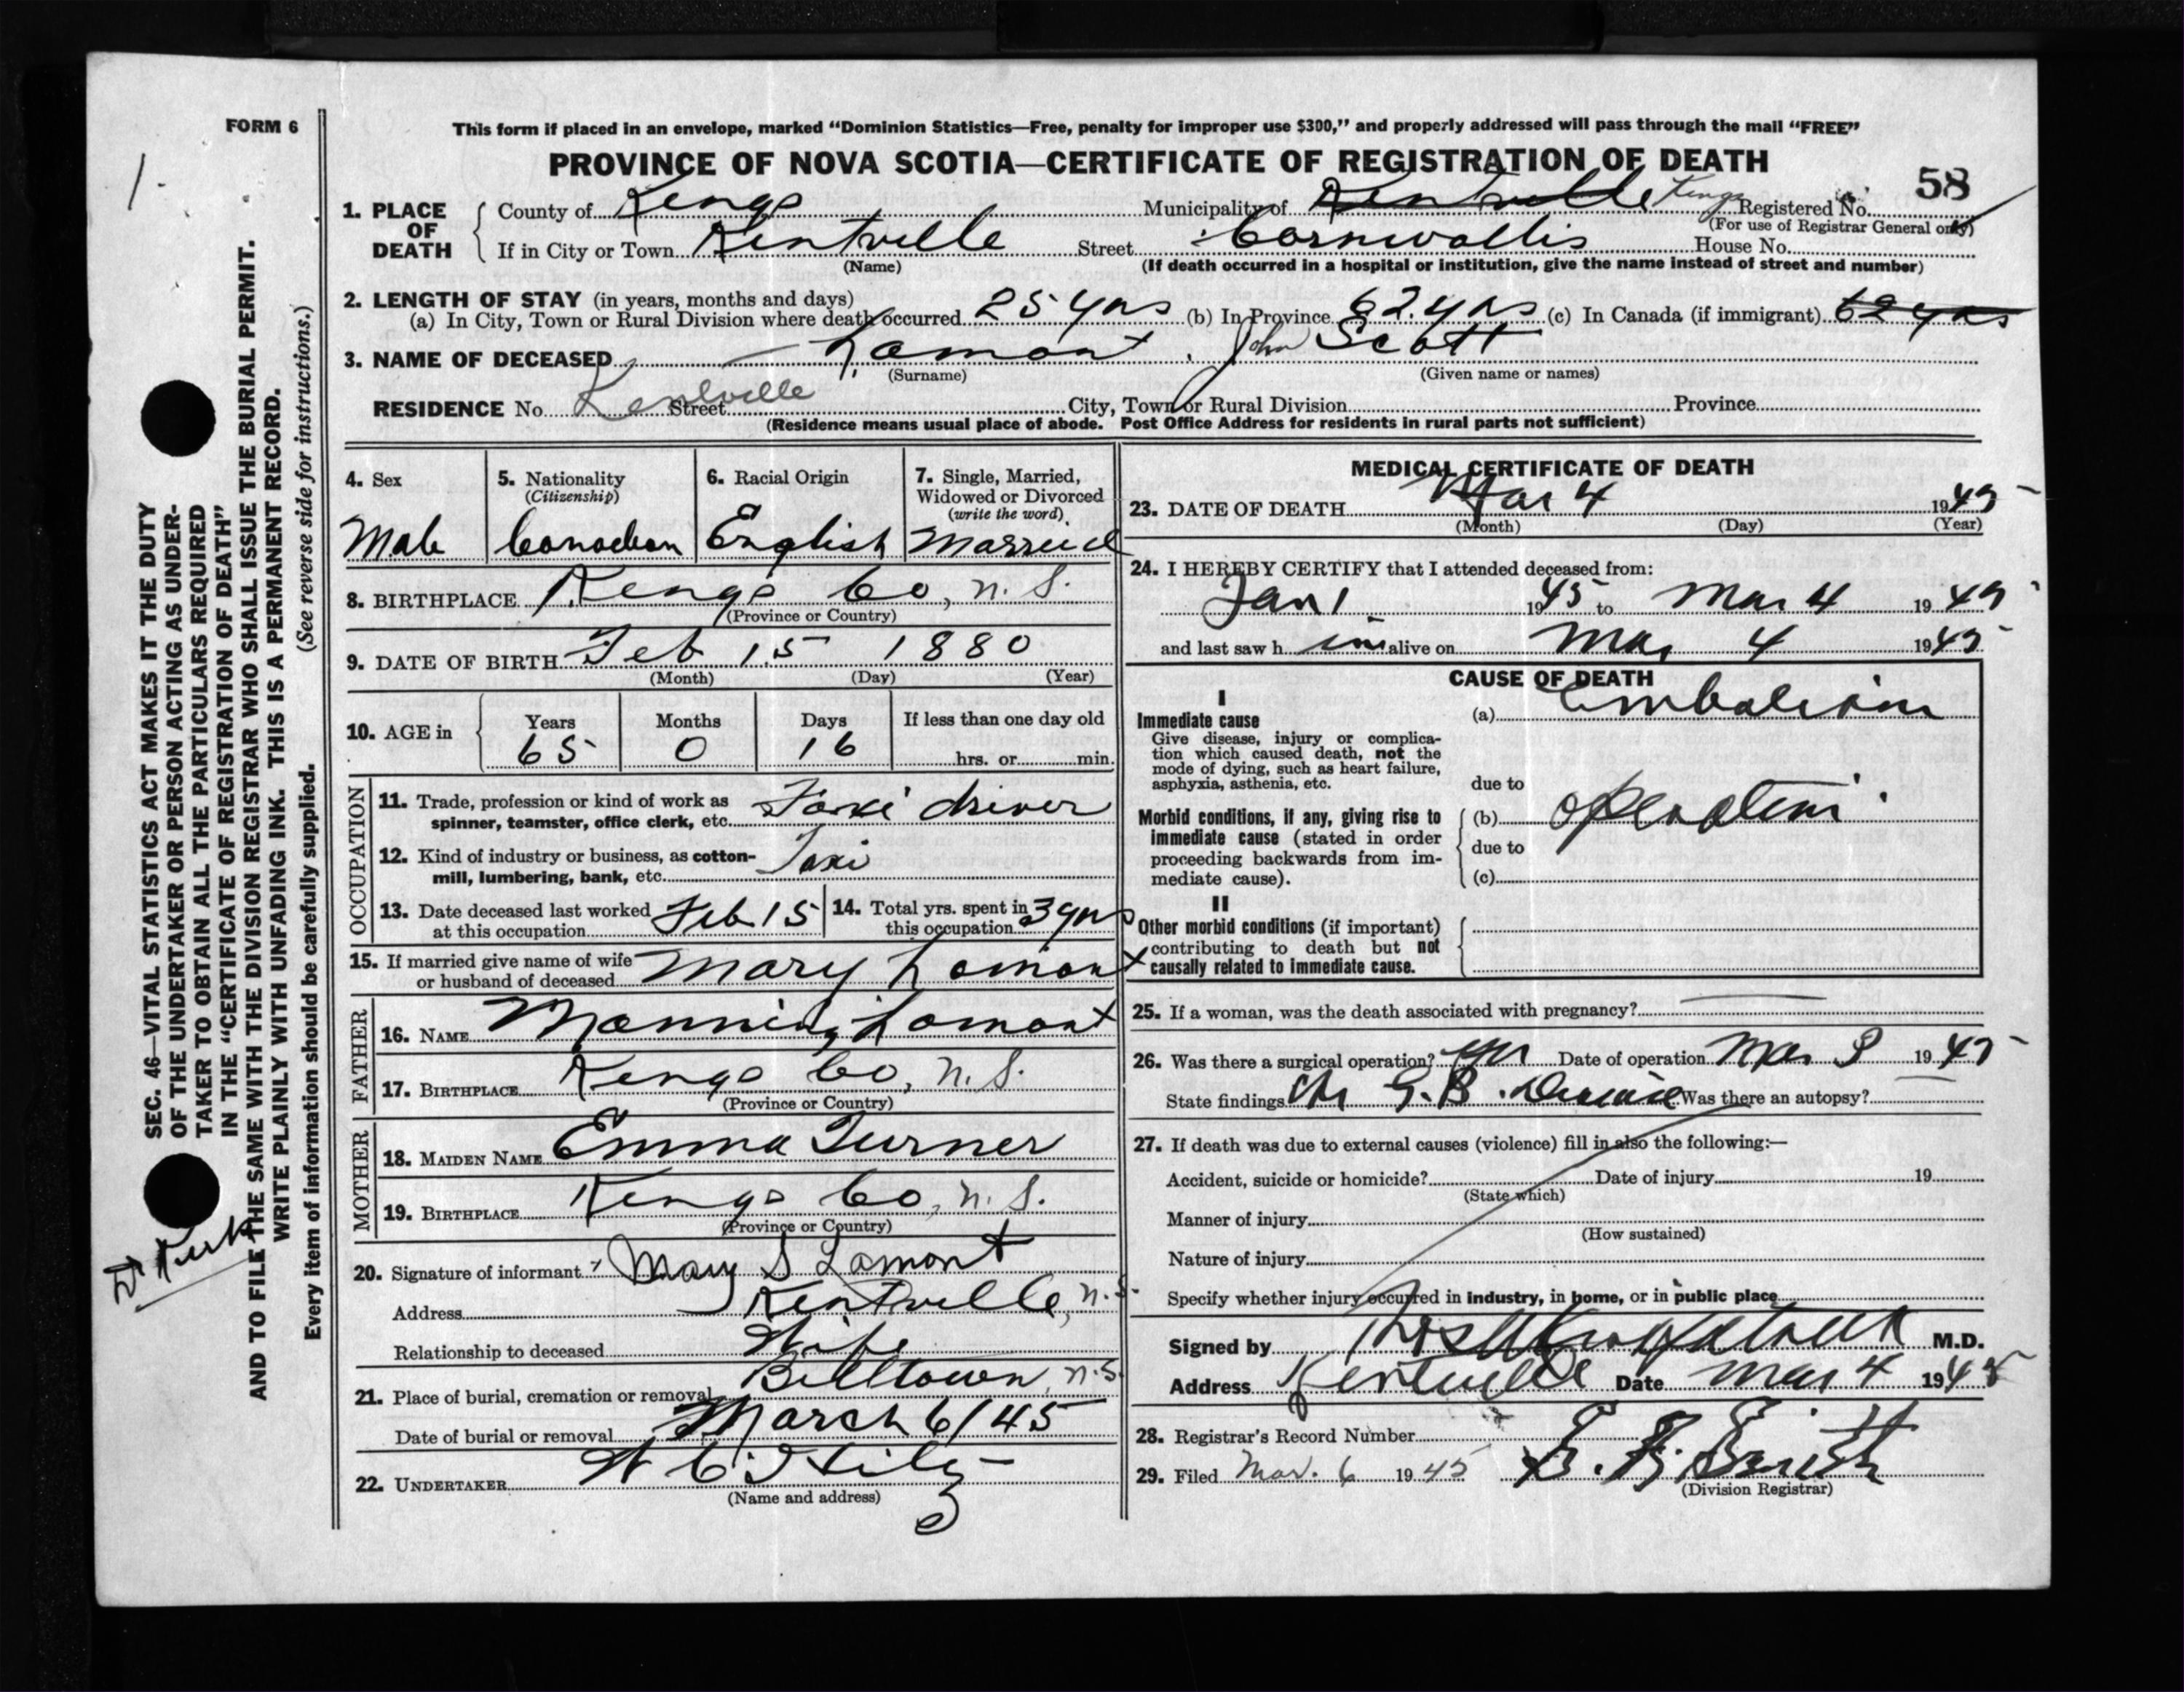 FORM 6
1.
This form if placed in an envelope, marked “Dominion Statistics—Free, penalty for improper use $300,” and properly addressed will pass through the mail “FREE”
PROVINCE OF NOVA SCOTIA—CERTIFICATE OF REGISTRATION OF DEATH
58
1. PLACE OF DEATH
County of Kings Municipality of Kentville Kings Registered No.
(For use of Registrar General only)
If in City or Town Kentville Street Cornwallis House No.
(Name) (If death occurred in a hospital or institution, give the name instead of street and number)
2. LENGTH OF STAY (in years, months and days)
(a) In City, Town or Rural Division where death occurred 25 yrs (b) In Province 62 yrs (c) In Canada (if immigrant) 62 yrs
3. NAME OF DECEASED Lamont John Scott
(Surname) (Given name or names)
RESIDENCE No. Kentville Street City, Town or Rural Division Province
(Residence means usual place of abode. Post Office Address for residents in rural parts not sufficient)
4. Sex Male
5. Nationality (Citizenship) Canadian
6. Racial Origin English
7. Single, Married, Widowed or Divorced (write the word) Married
8. BIRTHPLACE Kings Co, N.S.
(Province or Country)
9. DATE OF BIRTH Feb 15 1880
(Month) (Day) (Year)
10. AGE in Years 65 Months 0 Days 16 If less than one day old hrs. or min.
OCCUPATION
11. Trade, profession or kind of work as spinner, teamster, office clerk, etc. Taxi driver
12. Kind of industry or business, as cotton-mill, lumbering, bank, etc. Taxi
13. Date deceased last worked at this occupation Feb 15
14. Total yrs. spent in this occupation 3 yrs
15. If married give name of wife or husband of deceased Mary Lamont
FATHER
16. NAME Manning Lamont
17. BIRTHPLACE Kings Co, N.S.
(Province or Country)
MOTHER
18. MAIDEN NAME Emma Turner
19. BIRTHPLACE Kings Co, N.S.
(Province or Country)
20. Signature of informant Mary S Lamont
Address Kentville, N.S.
Relationship to deceased Wife
21. Place of burial, cremation or removal Billtown, N.S.
Date of burial or removal March 6/45
22. UNDERTAKER W C
(Name and address)
MEDICAL CERTIFICATE OF DEATH
23. DATE OF DEATH Mar 4 1945
(Month) (Day) (Year)
24. I HEREBY CERTIFY that I attended deceased from:
Jan 1 1945 to Mar 4 1945
and last saw h im alive on Mar 4 1945
CAUSE OF DEATH
I
Immediate cause
Give disease, injury or complica-
tion which caused death, not the
mode of dying, such as heart failure,
asphyxia, asthenia, etc.
(a) Embolism
due to
Morbid conditions, if any, giving rise to
immediate cause (stated in order
proceeding backwards from im-
mediate cause).
(b) Operation
due to
(c)
II
Other morbid conditions (if important)
contributing to death but not
causally related to immediate cause.
25. If a woman, was the death associated with pregnancy?
26. Was there a surgical operation? yes Date of operation Mar 1945
State findings G.B. Was there an autopsy?
27. If death was due to external causes (violence) fill in also the following:—
Accident, suicide or homicide? Date of injury 19
(State which)
Manner of injury
(How sustained)
Nature of injury
Specify whether injury occurred in industry, in home, or in public place
Signed by M.D.
Address Kentville Date Mar 4 1945
28. Registrar's Record Number
29. Filed Mar. 6 1945
(Division Registrar)
SEC. 46—VITAL STATISTICS ACT MAKES IT THE DUTY
OF THE UNDERTAKER OR PERSON ACTING AS UNDER-
TAKER TO OBTAIN ALL THE PARTICULARS REQUIRED
IN THE “CERTIFICATE OF REGISTRATION OF DEATH”
AND TO FILE THE SAME WITH THE DIVISION REGISTRAR WHO SHALL ISSUE THE BURIAL PERMIT.
WRITE PLAINLY WITH UNFADING INK. THIS IS A PERMANENT RECORD.
Every item of information should be carefully supplied. (See reverse side for instructions.)